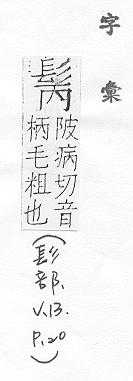 字彙
陂病切音
柄毛粗也
(髟部.
V.13.
P.20)